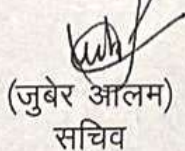 (जुबेर आलम)
सचिव